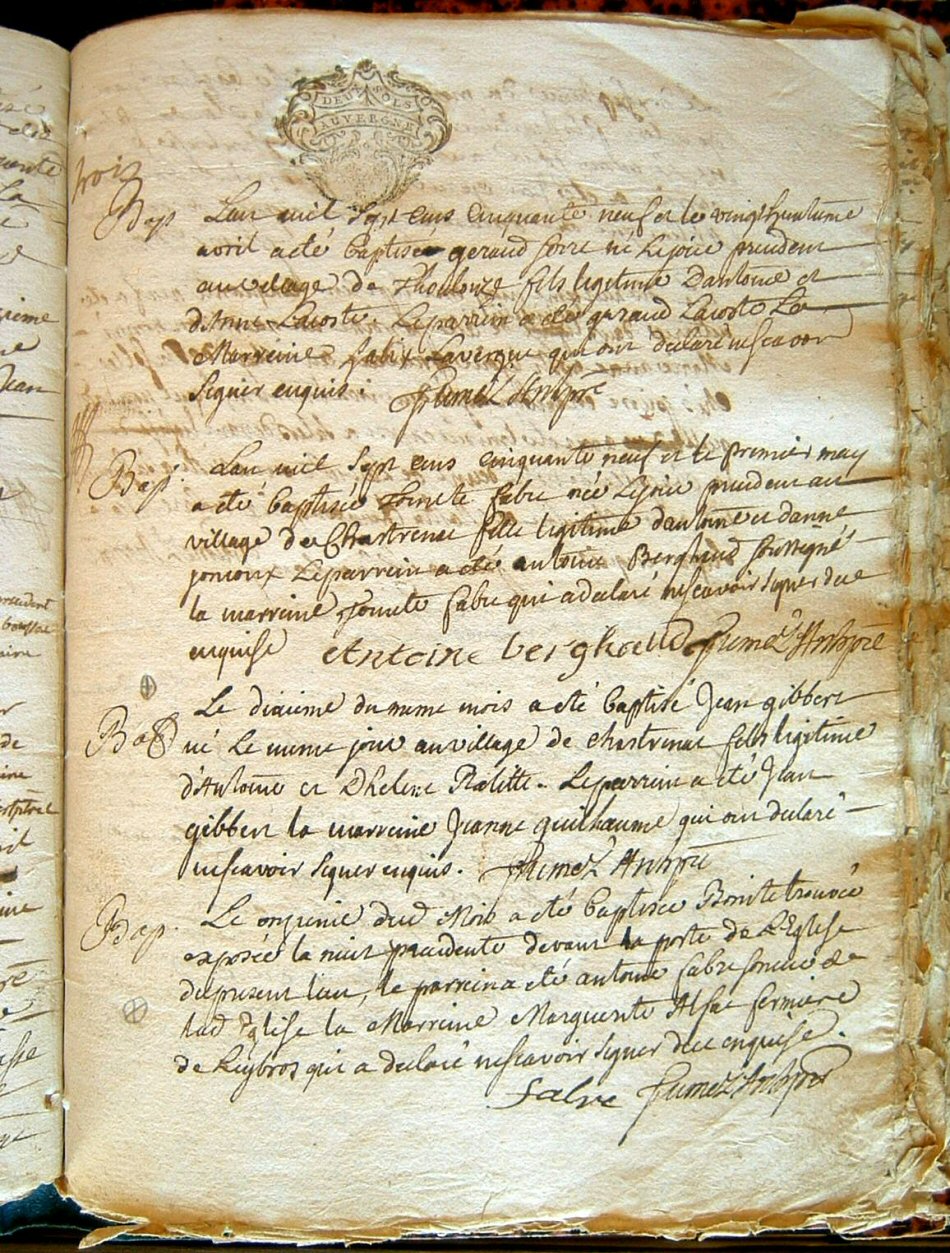 DEUX SOLS
AUVERGNE
trois
Bap. Lan mil sept cens cinquante neuf et le vingt huitieme
avril a été baptisé geraud né le jour precedent
au village de Thoulouze fils legitime Dantoine et
d'Anne Lacoste. Le parrein a été geraud Lacoste La
Marreine Lavergne qui ont declaré ne scavoir
signer enquis.
Bap. Lan mil sept cens cinquante neuf et le premier may
a été baptisée Toinete fabre née le jour precedent au
village de Chastrenac fille legitime dantoine et danne
jonioux Le parrein a été antoine Berghaud soussigné
la marreine Toinete fabre qui a declaré ne scavoir signer de ce
enquise Antoine berghaud
Bap Le dixieme du meme mois a été baptisé Jean gibbert
né le meme jour au village de chastrenac fils legitime
d'Antoine et Dhelene. Le parrein a été Jean
gibbert la marreine Jeanne guilhaume qui ont declaré
ne scavoir signer enquis.
Bap. Le onzieme dud Mois a été baptisée Bonite trouvée
exposée la nuit precedente devant la porte de L'Eglise
du present lieu, le parrein a été antoine fabre de
lad Eglise la Marreine Marguerite fermiere
de Leybros qui a declaré ne scavoir signer de ce enquise.
fabre